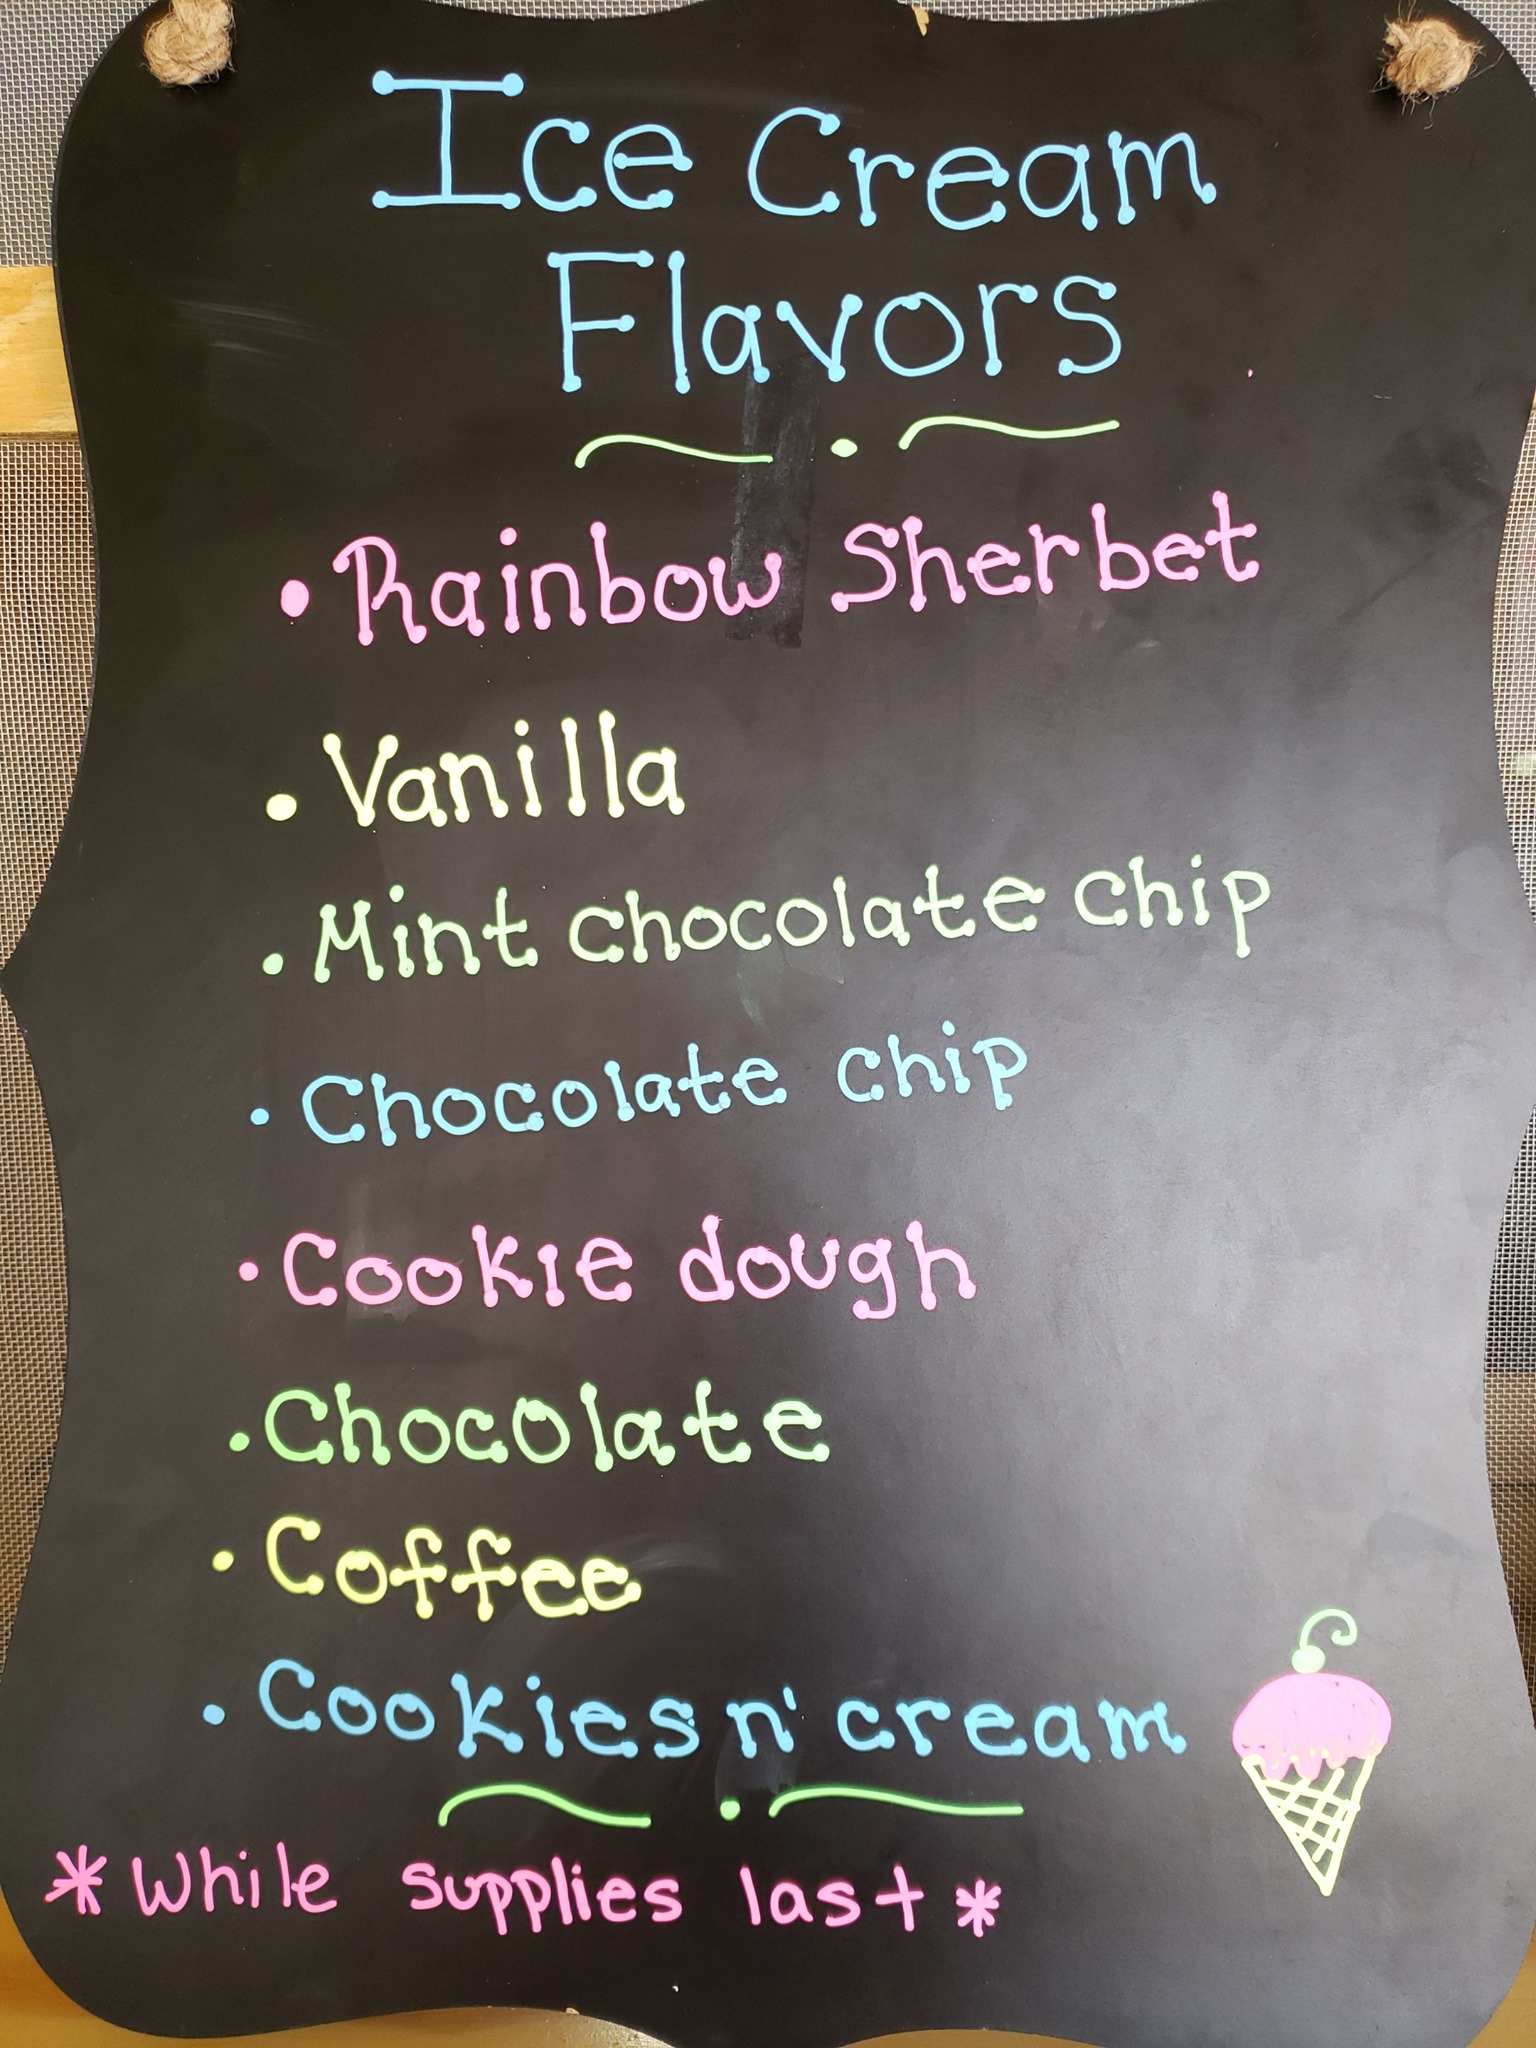 Ice Cream
Flavors
• Rainbow Sherbet
• Vanilla
• Mint chocolate chip
• Chocolate chip
• Cookie dough
• Chocolate
• Coffee
• Cookies n' cream
* While supplies last *